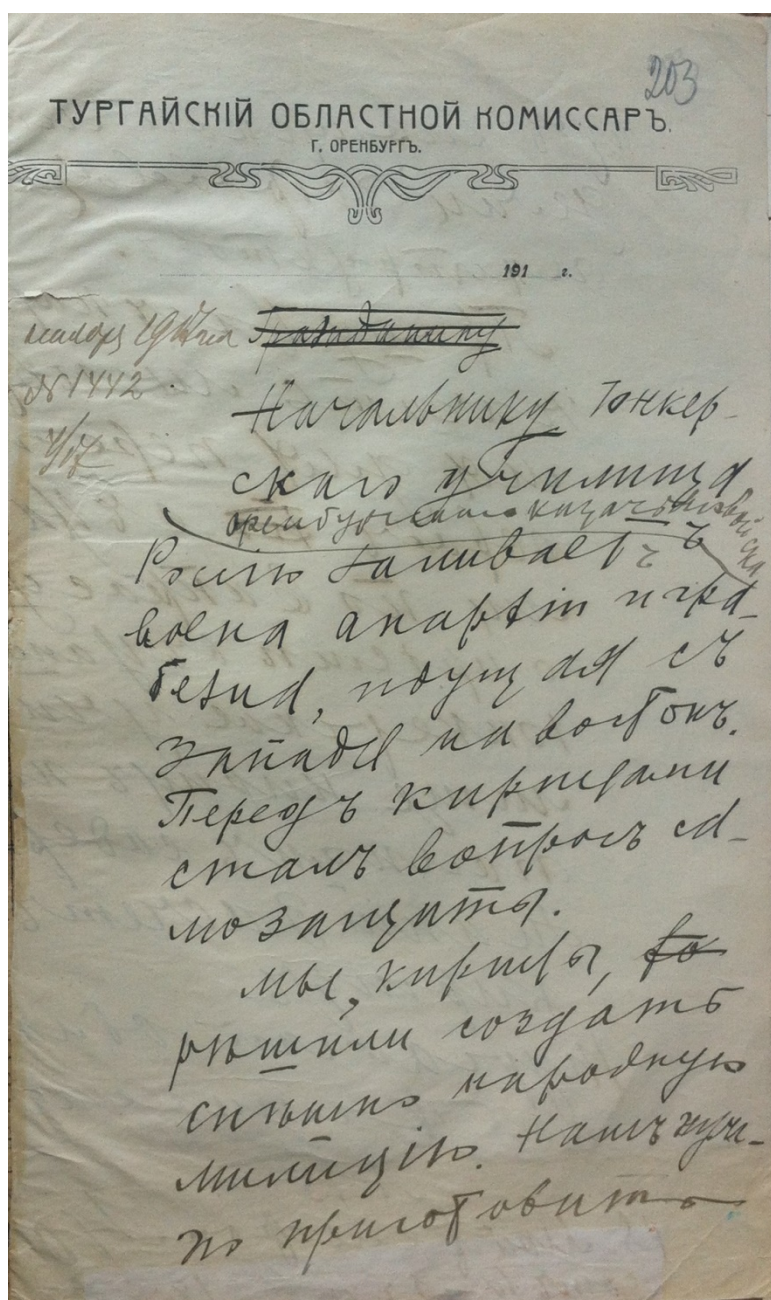 203
ТУРГАЙСКІЙ ОБЛАСТНОЙ КОМИССАРЪ.
Г. ОРЕНБУРГЪ.
191 г.
1917 года Гражданину
№ 1442
Начальнику Юнкер-
скаго училища
оренбургскаго казачьяго войска
Россію заливаетъ
волна анархіи и гра-
бежа, идущая съ
запада на востокъ.
Передъ киргизами
сталъ вопросъ са-
мозащиты.
Мы, киргизы,
рѣшили создать
спѣшно народную
милицію. Намъ нуж-
но приготовить